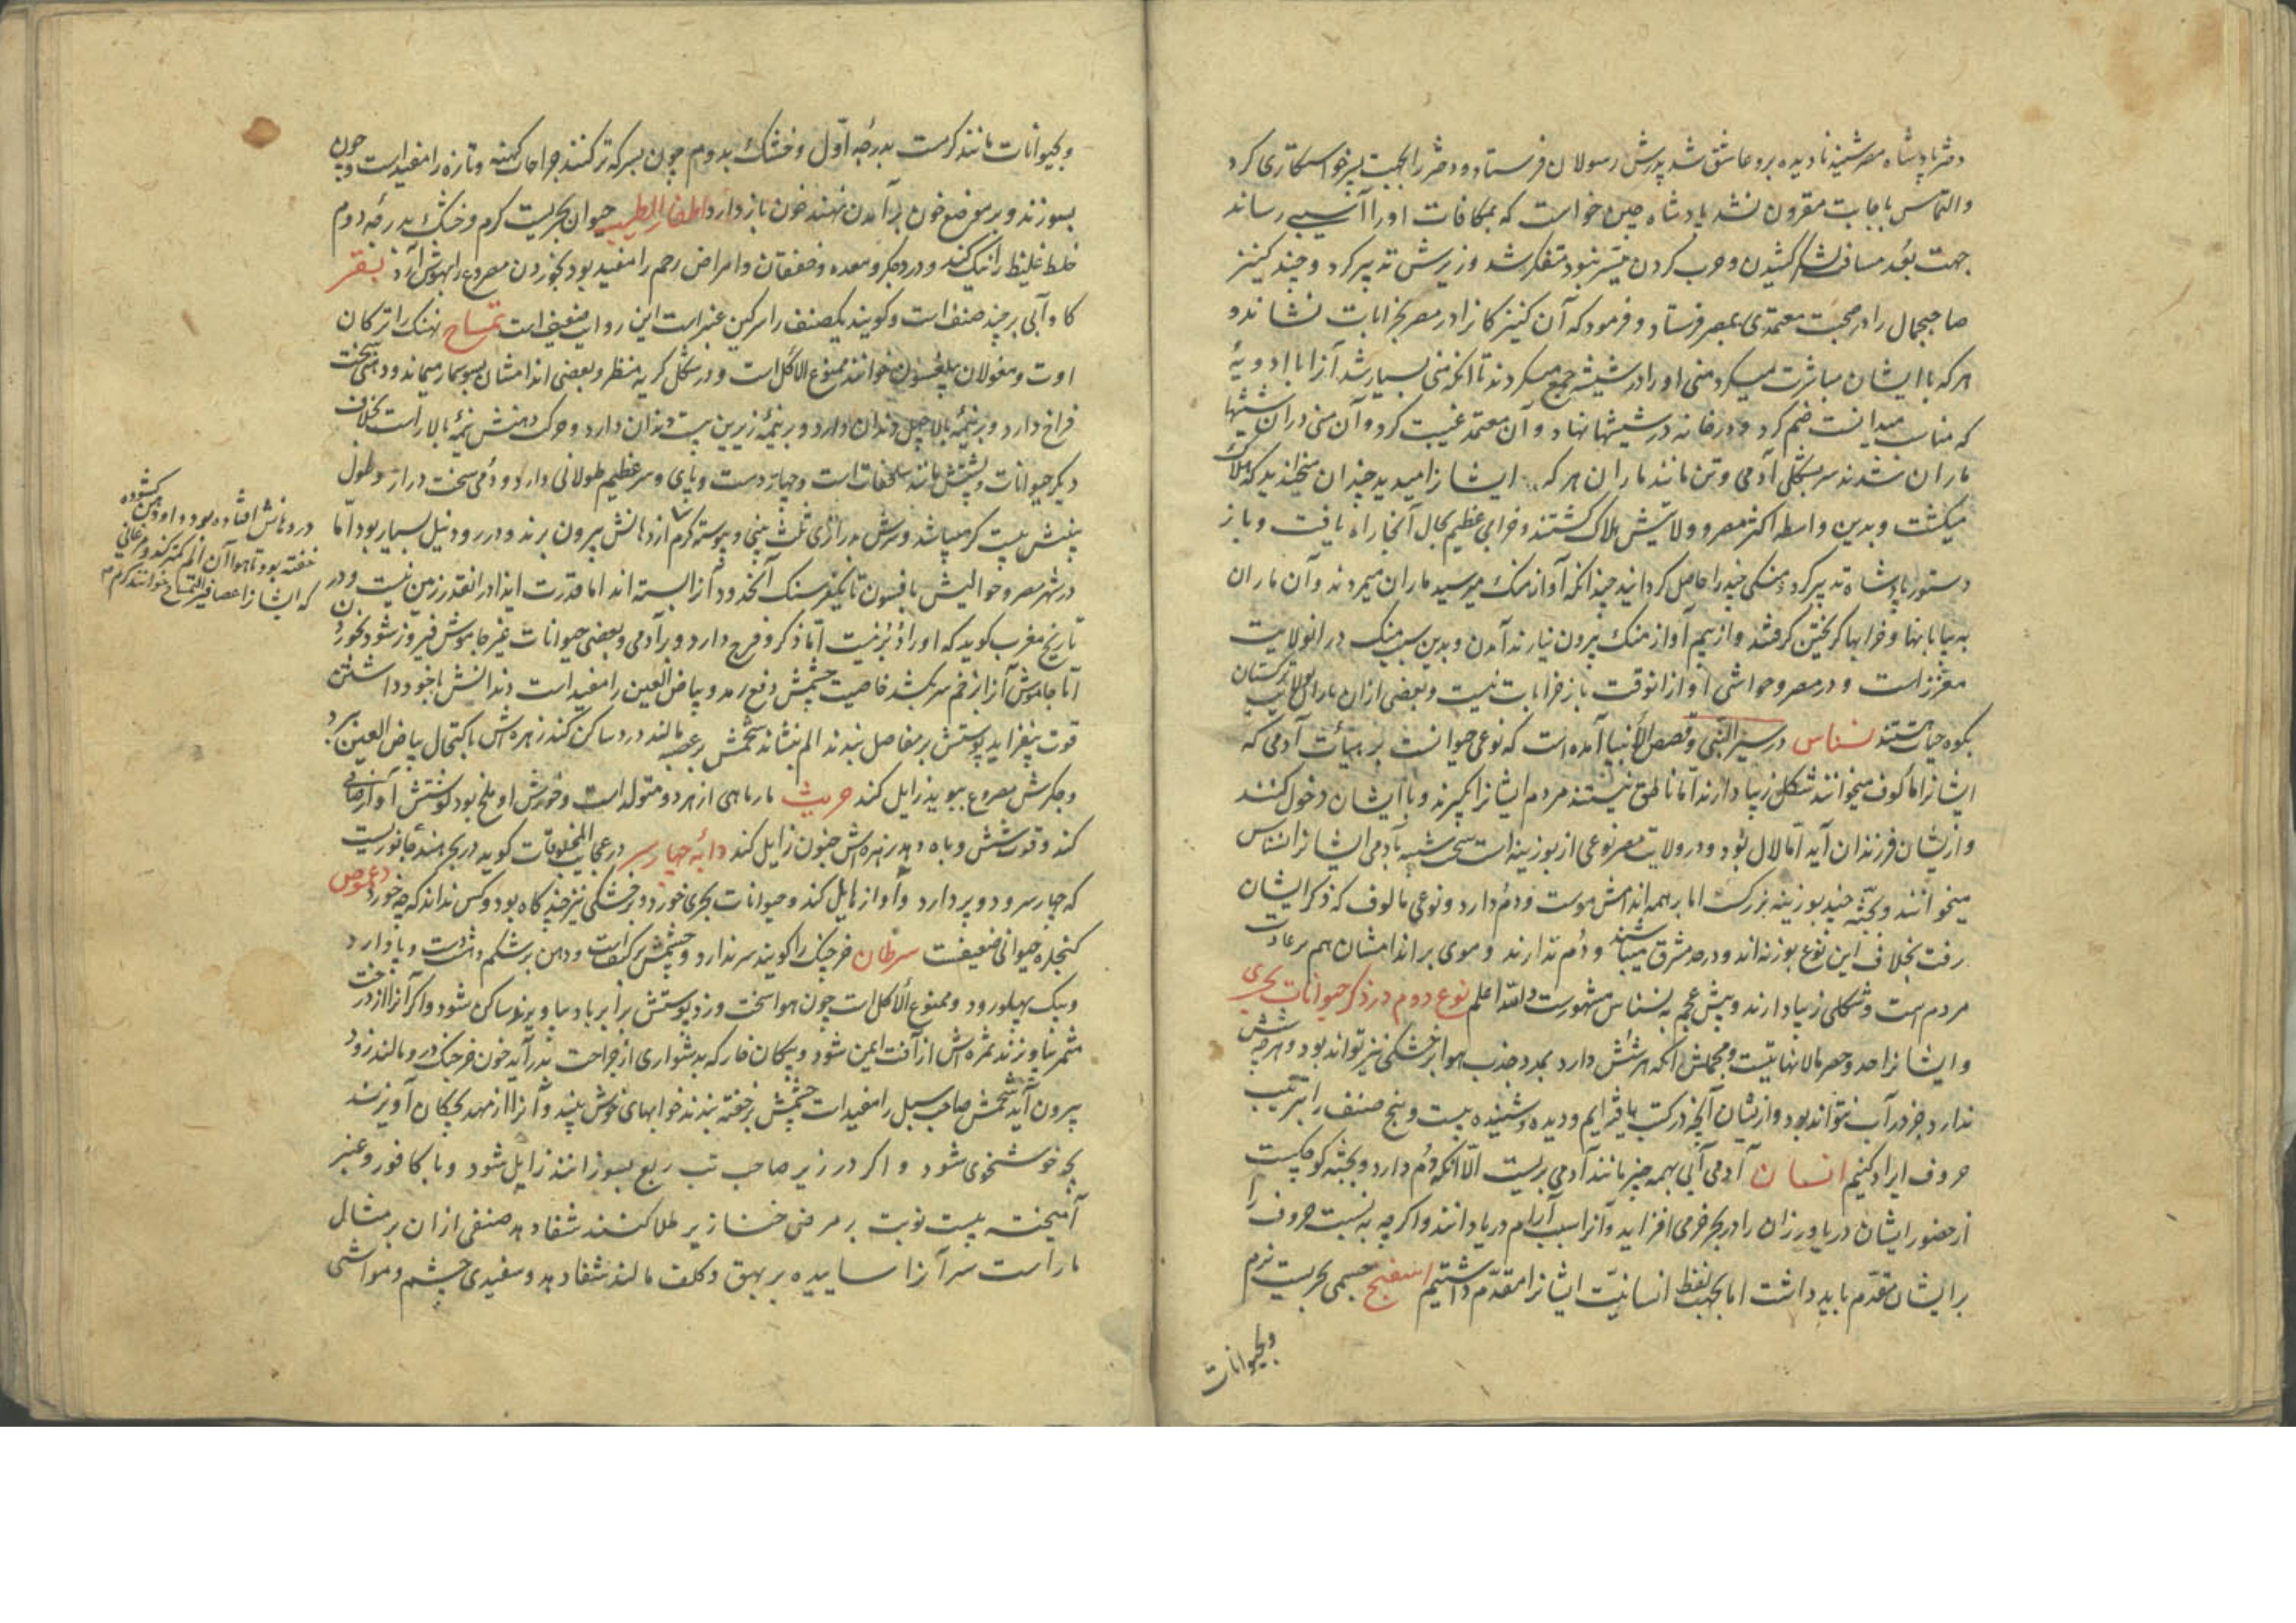 دختر پادشاه مصر شنید نادیده برو عاشق شد پدرش رسولان فرستاد و دختر را بجهت پسر خواستکاری کرد
و التماس باجابت مقرون نشد پادشاه چین خواست که بمکافات او را آسیبی رساند
جهت بعد مسافت لشکر کشیدن و حرب کردن میسر نبود متفکر شد وزیرش تدبیر کرد و چند کنیز
صاحبجمال را در صحبت معتمدی بمصر فرستاد و فرمود که آن کنیزکانرا در مصر بخرابات نشاند و
هر که با ایشان مباشرت میکرد منی او را در شیشه جمع میکردند تا آنکه منی بسیار شد آنرا با ادویهٔ
که مناسب میدانست ضم کرد و در خانه در شیشها نهاد و آن معتمد غیبت کرد و آن منی در آن شیشها
ماران شدند سر بشکل آدمی و تن مانند ماران هر که ایشانرا میدید چندان میخندید که هلاک
میکشت و بدین واسطه اکثر مصر و ولایتش هلاک کشتند و خرابی عظیم بحال آنجا راه یافت و باز
دستور پادشاه تدبیر کرد و منکی چند را حاصل کردانید چندانکه آواز منک میرسید ماران میمردند و آن ماران
به بیابانها و خرابها کریختن کرفتند و از بیم آواز منک بیرون نیارند آمدن و بدین سبب منک در آنولایت
معزز است و در مصر و حواشی او از آنوقت باز خرابات نیست و بعضی از آن ماران ترکستان
بکوه حیات هستند نسناس در سیر النبی و قصص الانبیا آمده است که نوعی حیوانست بر هیأت آدمی که
ایشانرا مأکوف میخوانند شکل زیبا دارند اما ناطق نیستند مردم ایشانرا بگیرند و با ایشان دخول کنند
و از یشان فرزندان آید اما لال بود و در ولایت مصر نوعی از بوزینه است سخت شبیه بآدمی ایشانرا نسناس
میخوانند و بجثه چند بوزینه بزرکست اما بر همه اندامش موست و دم دارد و نوعی مالوف که ذکر ایشان
رفت بخلاف این نوع بوزنه اند و در حد مشرق میباشند و دم ندارند و موی بر اندامشان هم بر عادت
مردم است و شکلی زیبا دارند و پیش عجم به نسناس مشهورست و الله اعلم نوع دوم در ذکر حیوانات بحری
و ایشانرا حد و حصر مالانهایتست و مجملش آنکه هر شش دارد بمدد جذب هوا بر خشکی نیز تواند بود و هر چه شش
ندارد جز در آب نتواند بود و از یشان آنچه در کتب یافته ایم و دیده و شنیده بیست و پنج صنف را بترتیب
حروف ایراد کنیم انسان آدمی آبی بهمه چیز مانند آدمی بریست الا آنکه دم دارد و بجثه کوچکست
از حضور ایشان دریا ورزان را در بحر خرمی افزاید و آنرا سبب آرام دریا دانند و اکر چه به نسبت حروف را
بر ایشان مقدم باید داشت اما بجهت لفظ انسانیت ایشانرا مقدم داشتیم اسفنج جسمی بحریست نرم
و بحیوانات
و بحیوانات مانند کرمست بدرجه اول و خشک بدوم چون بسرکه تر کنند جراحات کهنه و تازه را مفید است و چون
بسوزند و بر موضع خون بر آمدن نهند خون باز دارد اظفار الطیب حیوان بحریست کرم و خشک بدرجه دوم
خلط غلیظ را نیک کند و درد جکر و معده و خفقان و امراض رحم را مفید بود بخوردن مصروع را بهوش آرد بقر
کاو آبی بر چند صنف است و کویند یکصنف را سرکین عنبر است این روایت ضعیف است تمساح نهنک را ترکان
اوت و مغولان خوانند ممنوع الاکل است و در شکل کریه منظر و بعضی اندامشان بسوسمار میماند و دهنی سخت
فراخ دارد و بر نیمهٔ بالا چهل دندان دارد و بر نیمهٔ زیرین بیست دندان دارد و حرکت دهنش نیمهٔ بالا راست بخلاف
دیکر حیوانات و پشتش مانند سلحفات است و چهار دست و پای و سر عظیم طولانی دارد و دمی سخت دراز و طول
بیست کز میباشد و سرش بدرازی ثلث پنجی و پیوسته کرم از دهانش بیرون برند و در رود نیل بسیار بود اما
در شهر مصر و حوالیش بافسون تا یکفرسنک آنحدود آنرا بسته اند اما قدرت ایذا در آنقدر زمین نیست و در
تاریخ مغرب کوید که او را دبر نیست اما ذکر و فرج دارد و بر آدمی و بعضی حیوانات غیر جاموش فیروز شود بخوردن
اما جاموش آنرا زخم سر بکشد خاصیت چشمش دفع رمد و بیاض العین را مفید است دندانش با خود داشتن
قوت بیفزاید پوستش بر مفاصل بندند الم بنشاند شحمش بر عصبه مالند درد ساکن کند زهره اش باکتحال بیاض العین ببرد
و جکرش مصروع ببوید زایل کند جریث مارماهی از هر دو متولد است و خورش او ملخ بود کوشتش آواز صافی
کند و قوت شش و باه دهد زهره اش جنون زایل کند دابه چهار سر در عجایب المخلوقات کوید در بحر هند جانوریست
که چهار سر و دو پر دارد و آواز هایل کند و حیوانات بحری خورد و بر خشکی نیز چند کاه بود و کس نداند که چه خورد دعموص
کنجلره حیوانی ضعیفست سرطان خرچنک را کویند سر ندارد و چشمش بر کتف است و دهن بر شکم و هشت دست و پا دارد
و بیک پهلو رود و ممنوع الاکل است چون هوا سخت وزد پوستش برابر باد بیاویزند ساکن شود و اکر آنرا از درخت
مثمر بیاویزند ثمره اش از آفت ایمن شود و پیکان خار که بدشواری از جراحت بدر آید خون خرچنک در و مالند زود
بیرون آید شحمش صاحب سبل را مفید است چشمش بر خفته بندند خوابهای خوش بیند و آنرا از مهد بچکان آویزند
بچه خوشخوی شود و اکر در زیر صاحب تب ربع بسوزانند زایل شود و با کافور و عنبر
آمیخته بیست نوبت بر مرض خنازیر طلا کنند شفا دهد صنفی از آن بر مثال
مار است سر آنرا ساییده بر بهق و کلف مالند شفا دهد و سفیدی چشم و مواشی
در دهانش افتاده بود و او دهن کشوده
خفته بود تا هوا آن الم کمتر کند و مرغانی
که ایشانرا عصافیر التمساح خوانند کرم